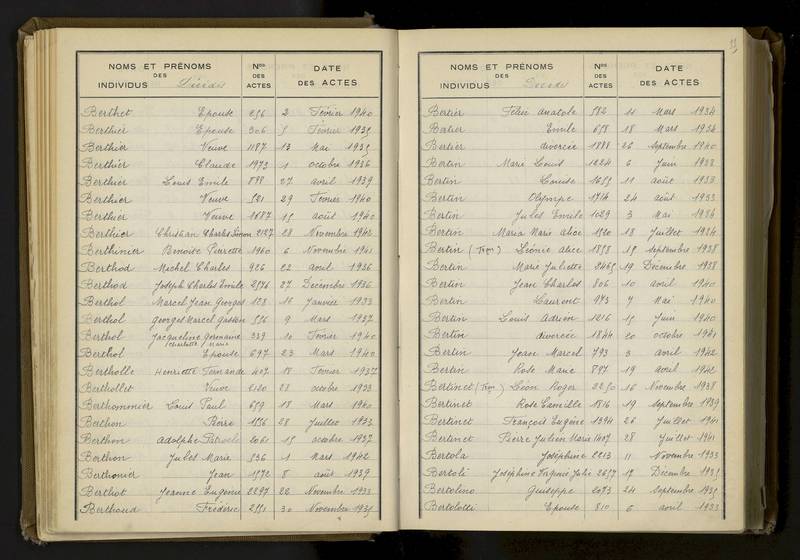 NOMS ET PRÉNOMS DES INDIVIDUS Décédés Nos DES ACTES DATE DES ACTES
Berthet Epouse 256 2 Février 1940
Berthier Epouse 306 5 Février 1935
Berthier Veuve 1187 13 Mai 1935
Berthier Claude 1973 1 octobre 1936
Berthier Louis Emile 898 27 avril 1939
Berthier Veuve 521 29 Février 1940
Berthier Veuve 1687 15 août 1940
Berthier Christian Charles Simon 2127 28 Novembre 1942
Berthinier Benoîte Pierrette 1960 6 Novembre 1941
Berthod Michel Charles 926 22 avril 1936
Berthod Joseph Charles Emile 2576 27 Décembre 1936
Berthol Marcel Jean Georges 128 16 Janvier 1933
Berthol Georges Marcel Gaston 556 9 Mars 1937
Berthol Jacqueline Germaine 339 10 Février 1940
Charlotte Marie
Berthol Epouse 697 23 Mars 1940
Bertholle Henriette Fernande 407 18 Février 1937
Berthollet Veuve 2120 28 octobre 1933
Berthommier Louis Paul 659 18 Mars 1940
Berthon Pierre 1556 28 Juillet 1933
Berthon Adolphe 2061 15 octobre 1937
Berthon Jules Marie 536 1 Mars 1942
Berthonier Jean 1572 8 août 1939
Berthot Jeanne Eugénie 2297 26 Novembre 1933
Berthoud Frédéric 2551 30 Novembre 1935
NOMS ET PRÉNOMS DES INDIVIDUS Décédés Nos DES ACTES DATE DES ACTES
Bertier Félix Anatole 582 11 Mars 1934
Bertier Emile 658 18 Mars 1934
Bertier divorcée 1888 26 Septembre 1940
Bertin Marie Louis 1224 6 Juin 1938
Bertin Louise 1655 11 août 1933
Bertin Olympe 1714 24 août 1933
Bertin Jules Emile 1029 3 Mai 1936
Bertin Maria Marie Alice 1520 18 Juillet 1934
Bertin Léonie Alice 1858 15 Septembre 1938
Bertin Marie Juliette 2465 19 Décembre 1938
Bertin Jean Charles 806 10 avril 1940
Bertin Laurent 973 7 Mai 1940
Bertin Louis Adrien 1216 15 Juin 1940
Bertin divorcée 1844 20 octobre 1941
Bertin Jean Marcel 793 3 avril 1942
Bertin Rose Marie 897 19 avril 1942
Bertinet Léon Roger 2250 16 Novembre 1938
Bertinet Rose Camille 1816 19 Septembre 1939
Bertinet François Eugène 1394 26 Juillet 1941
Bertinet Pierre Julien Marie 1407 28 Juillet 1941
Bertola Joséphine 2213 11 Novembre 1933
Bertoli Joséphine Julie 2657 12 Décembre 1935
Bertolino Giuseppe 2073 24 Septembre 1935
Bertolotti Epouse 810 6 avril 1933